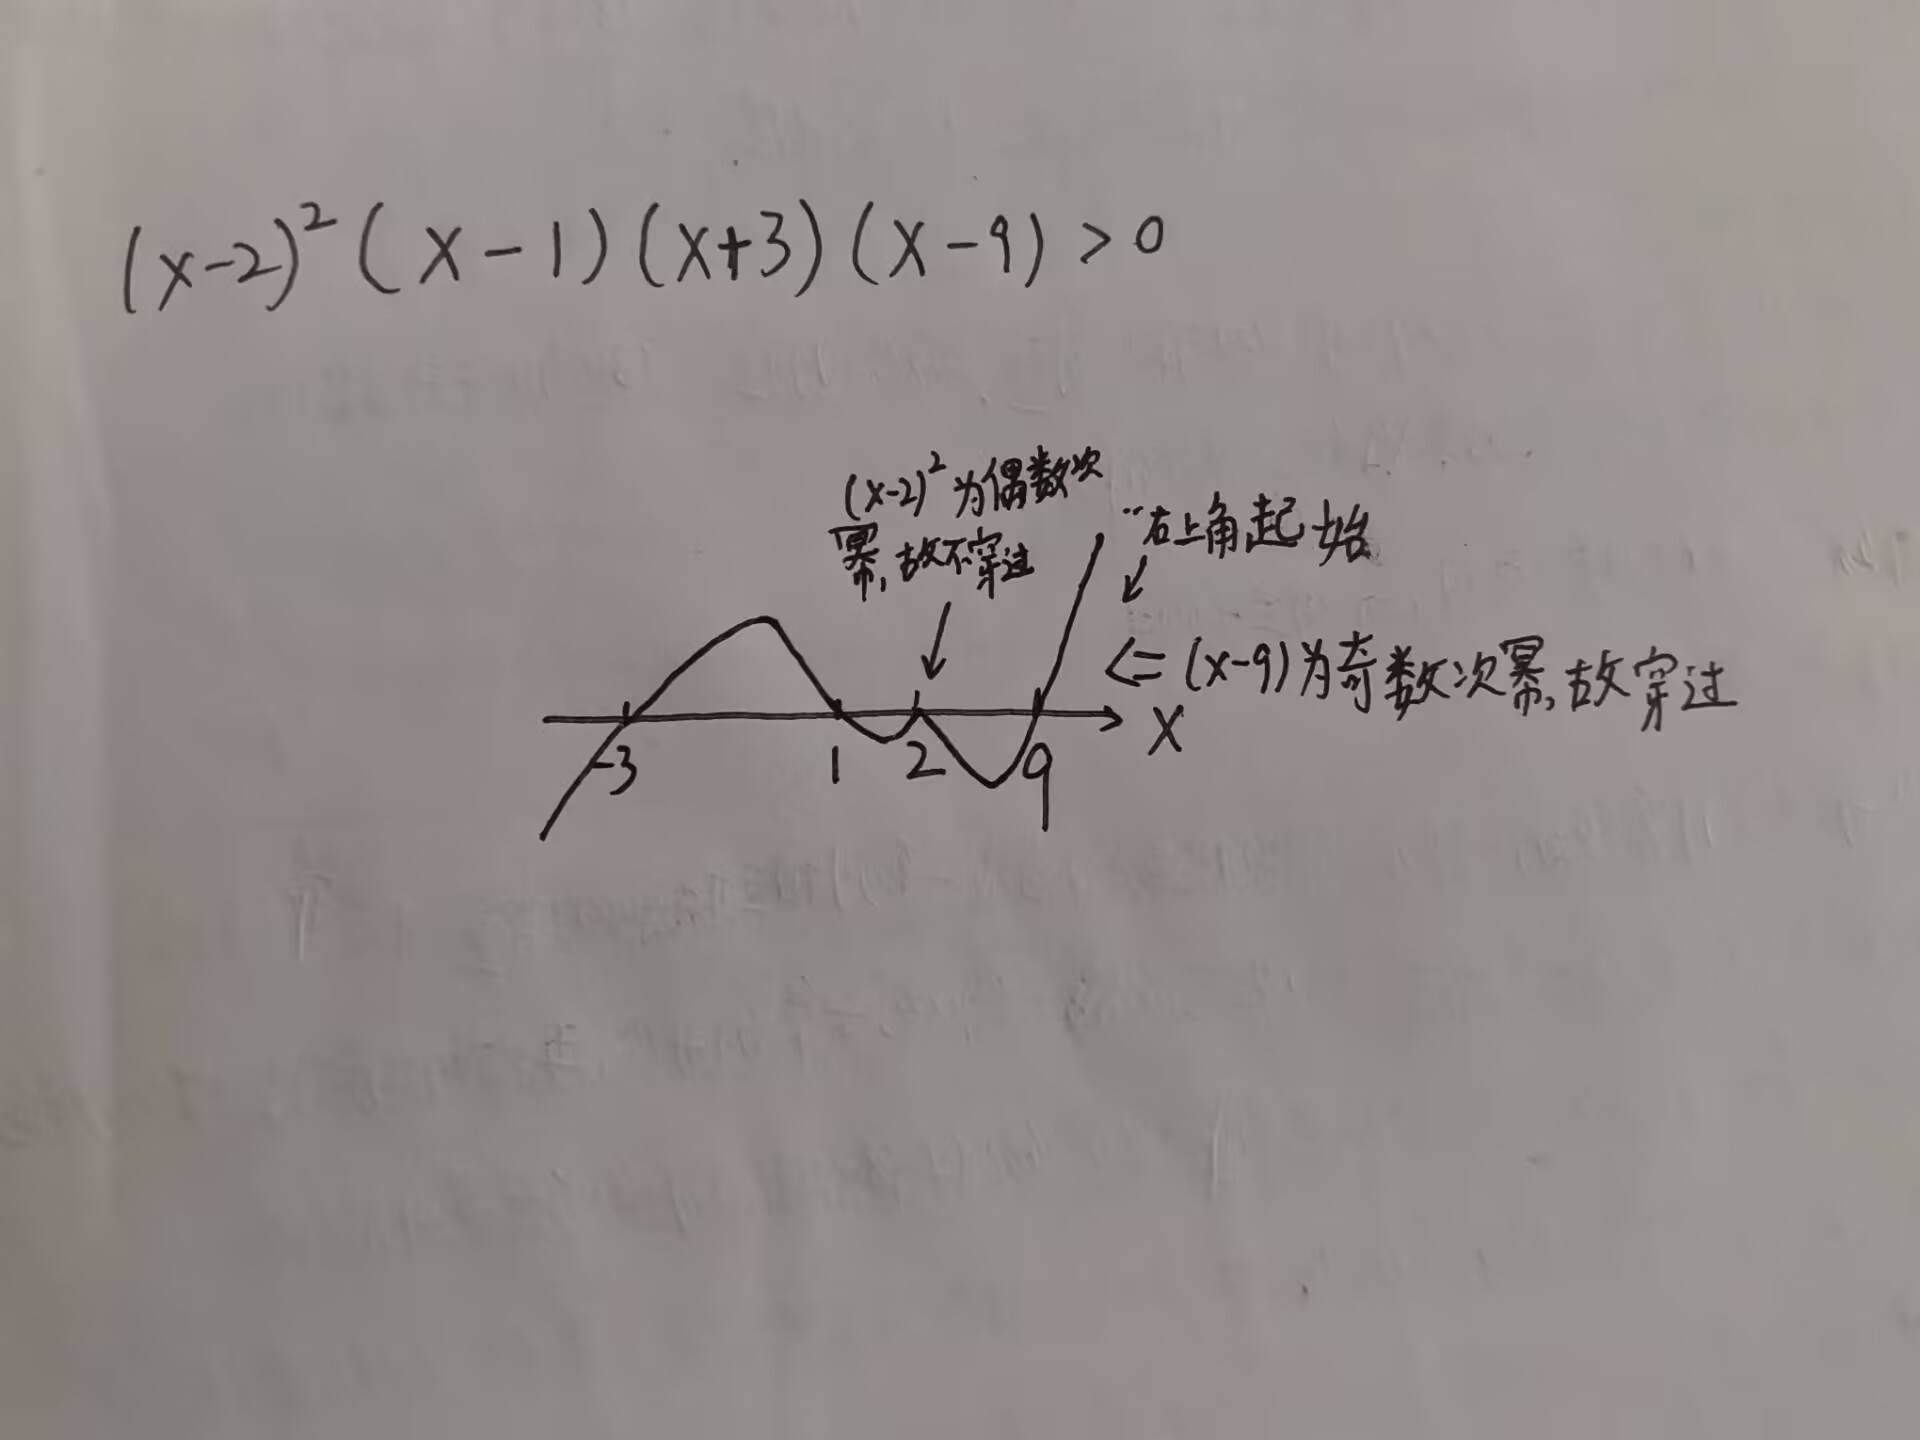 (x-2)²(x-1)(x+3)(x-9)>0
(x-2)²为偶数次
幂,故不穿过
右上角起始
<= (x-9)为奇数次幂,故穿过
-3 1 2 9 X